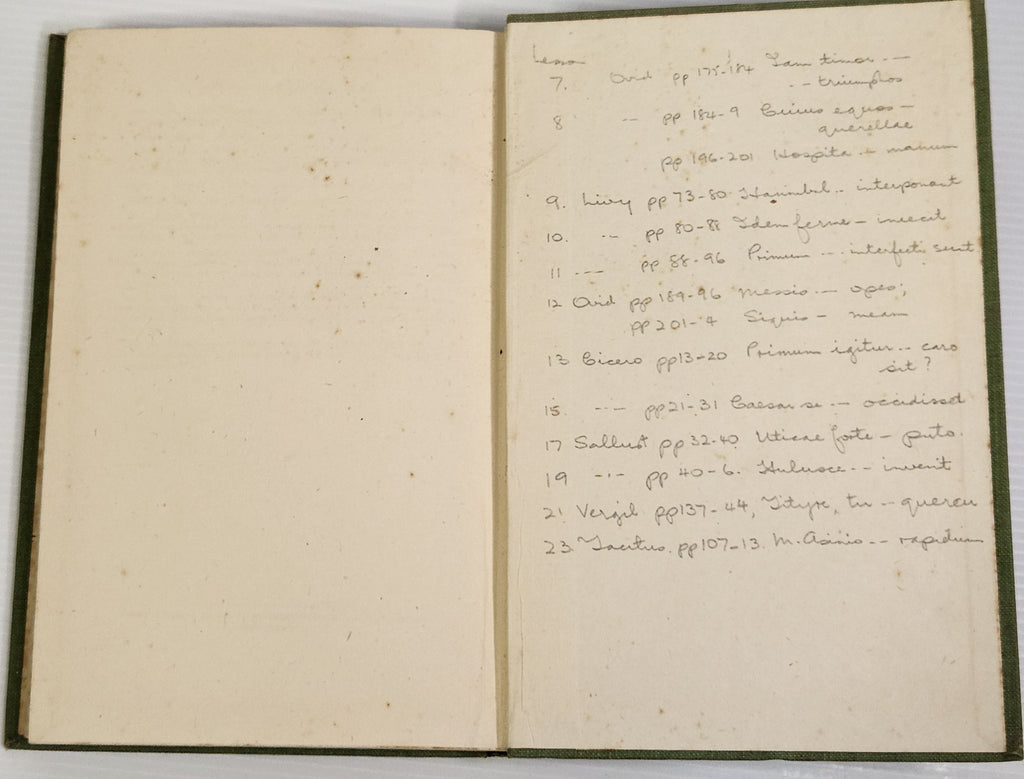 Lesson
7. Ovid pp 175-184 Iam timor -- --
-- triumphos
8 -- pp 184-9 equos --
querellae
pp 196-201 Hospita -- manum
9. Livy pp 73-80 Hannibal -- interponant
10. -- pp 80-88 Idem ferme -- iniecit
11 --- pp 88-96 Primum --- interfecti sunt
12 Ovid pp 189-96 Messis --- opes;
pp 201-4 Siquis -- meam
13 Cicero pp 13-20 Primum igitur -- caro
sit?
15 --- pp 21-31 Caesar se --- occidisset
17 Sallust pp 32-40 Uticae forte -- puto.
19 --- pp 40-6. -- invenit
21 Vergil pp 137-44, Tityre, tu -- quercu
23 Tacitus. pp 107-13. M. Asinio -- rapidum